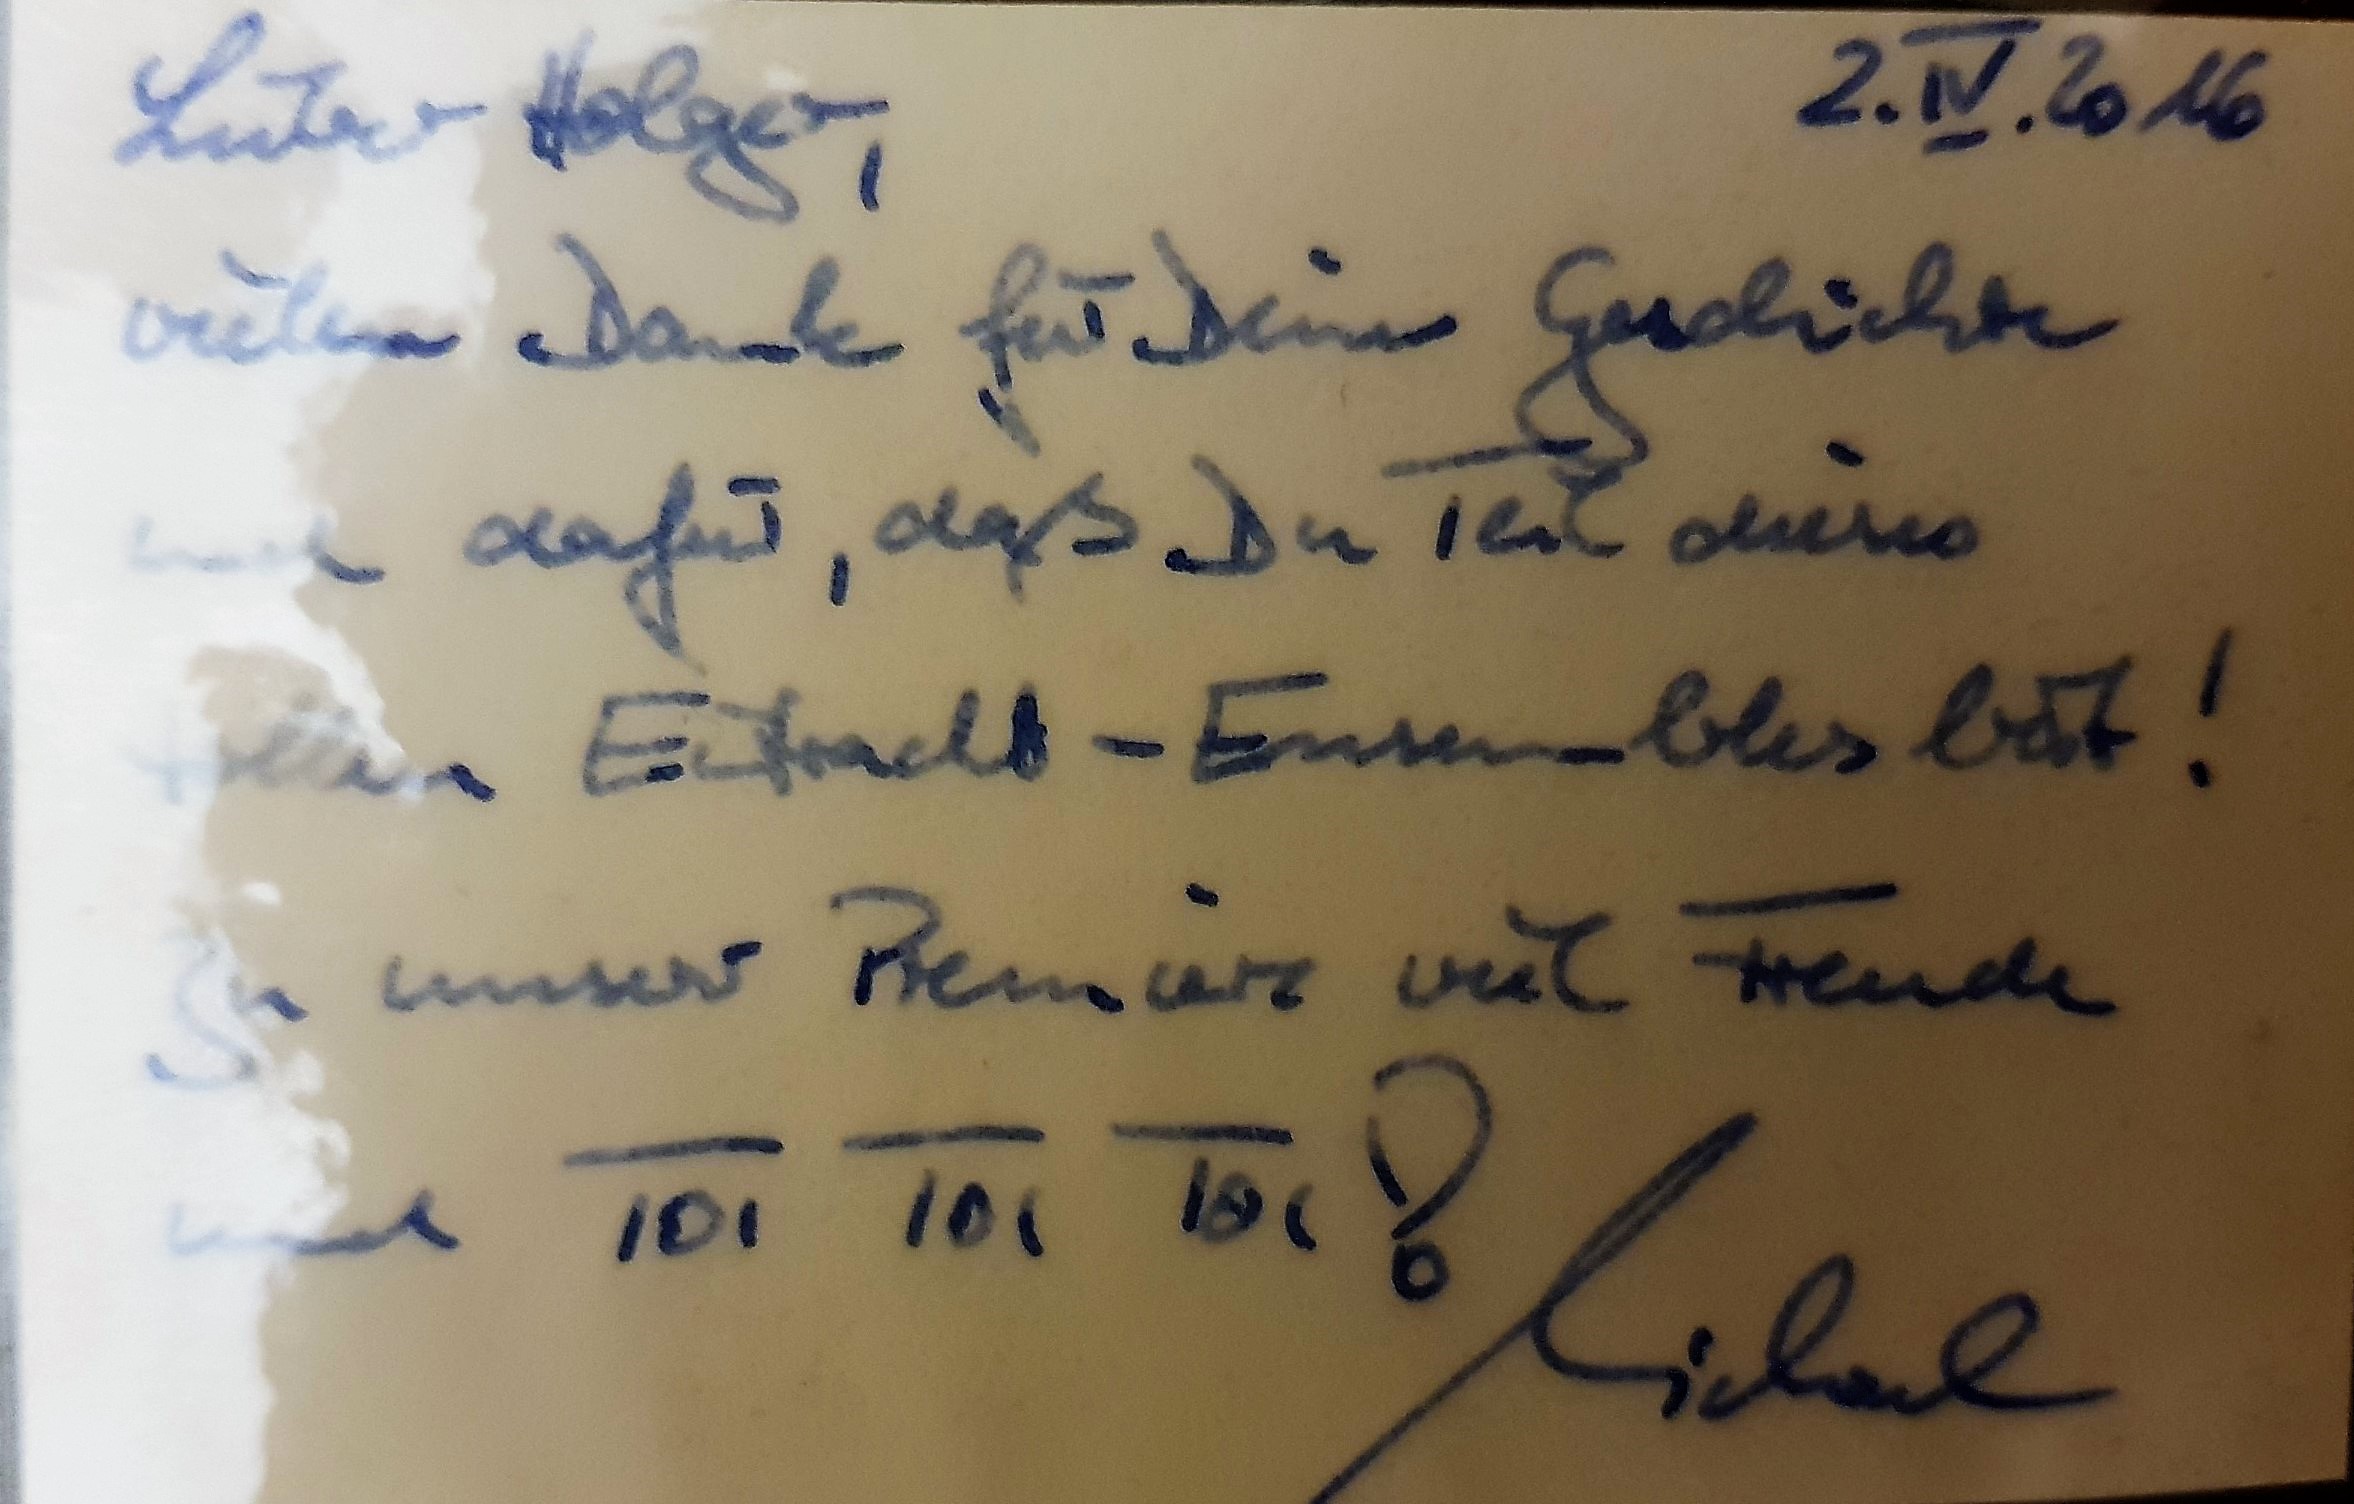 Lieber Holger, 2.IV.2016
vielen Dank für Deine Geschichte
und dafür, daß Du Teil dieses
tollen Eintracht-Ensembles bist!
Zu unserer Premiere viel Freude
und TOI TOI TOI!
Michael